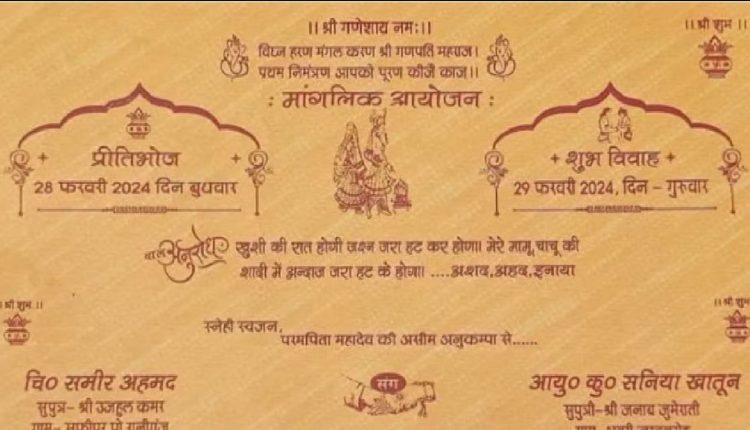 ।। श्री गणेशाय नमः।।
।। श्री शुभ ।।
विघ्न हरण मंगल करण श्री गणपति महराज।
प्रथम निमंत्रण आपको पूरण कीजै काज।।
: मांगलिक आयोजन :
प्रीतिभोज
28 फरवरी 2024 दिन बुधवार
शुभ विवाह
29 फरवरी 2024, दिन – गुरुवार
बाल अनुरोध
खुशी की रात होगी जश्न जरा हट कर होगा। मेरे मामू,चाचू की
शादी में अन्दाज जरा हट के होगा। ....अशद,अहद,इनाया
श्री शुभ ।।
।। श्री शुभ
स्नेही स्वजन,
परमपिता महादेव की असीम अनुकम्पा से......
चि० समीर अहमद
सुपुत्र– श्री उजहूल कमर
संग
आयु० कु० सनिया खातून
सुपुत्री–श्री जनाब जुमेराती